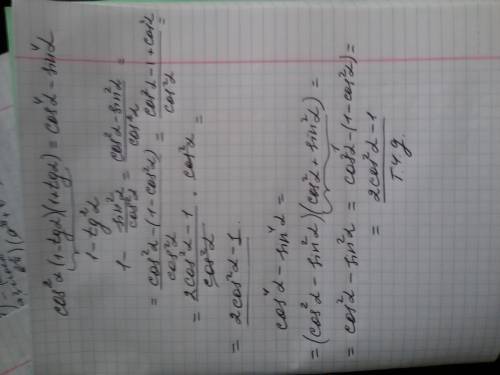 cos²α(1-tgα)(1+tgα) = cos⁴α - sin⁴α
1-tg²α
1 - sin²α/cos²α = (cos²α - sin²α)/cos²α =
= (cos²α - (1-cos²α))/cos²α = (cos²α - 1 + cos²α)/cos²α =
= (2cos²α - 1)/cos²α · cos²α =
= 2cos²α - 1
cos⁴α - sin⁴α =
= (cos²α - sin²α)(cos²α + sin²α) =
= cos²α - sin²α = cos²α - (1-cos²α) =
= 2cos²α - 1
тчд.